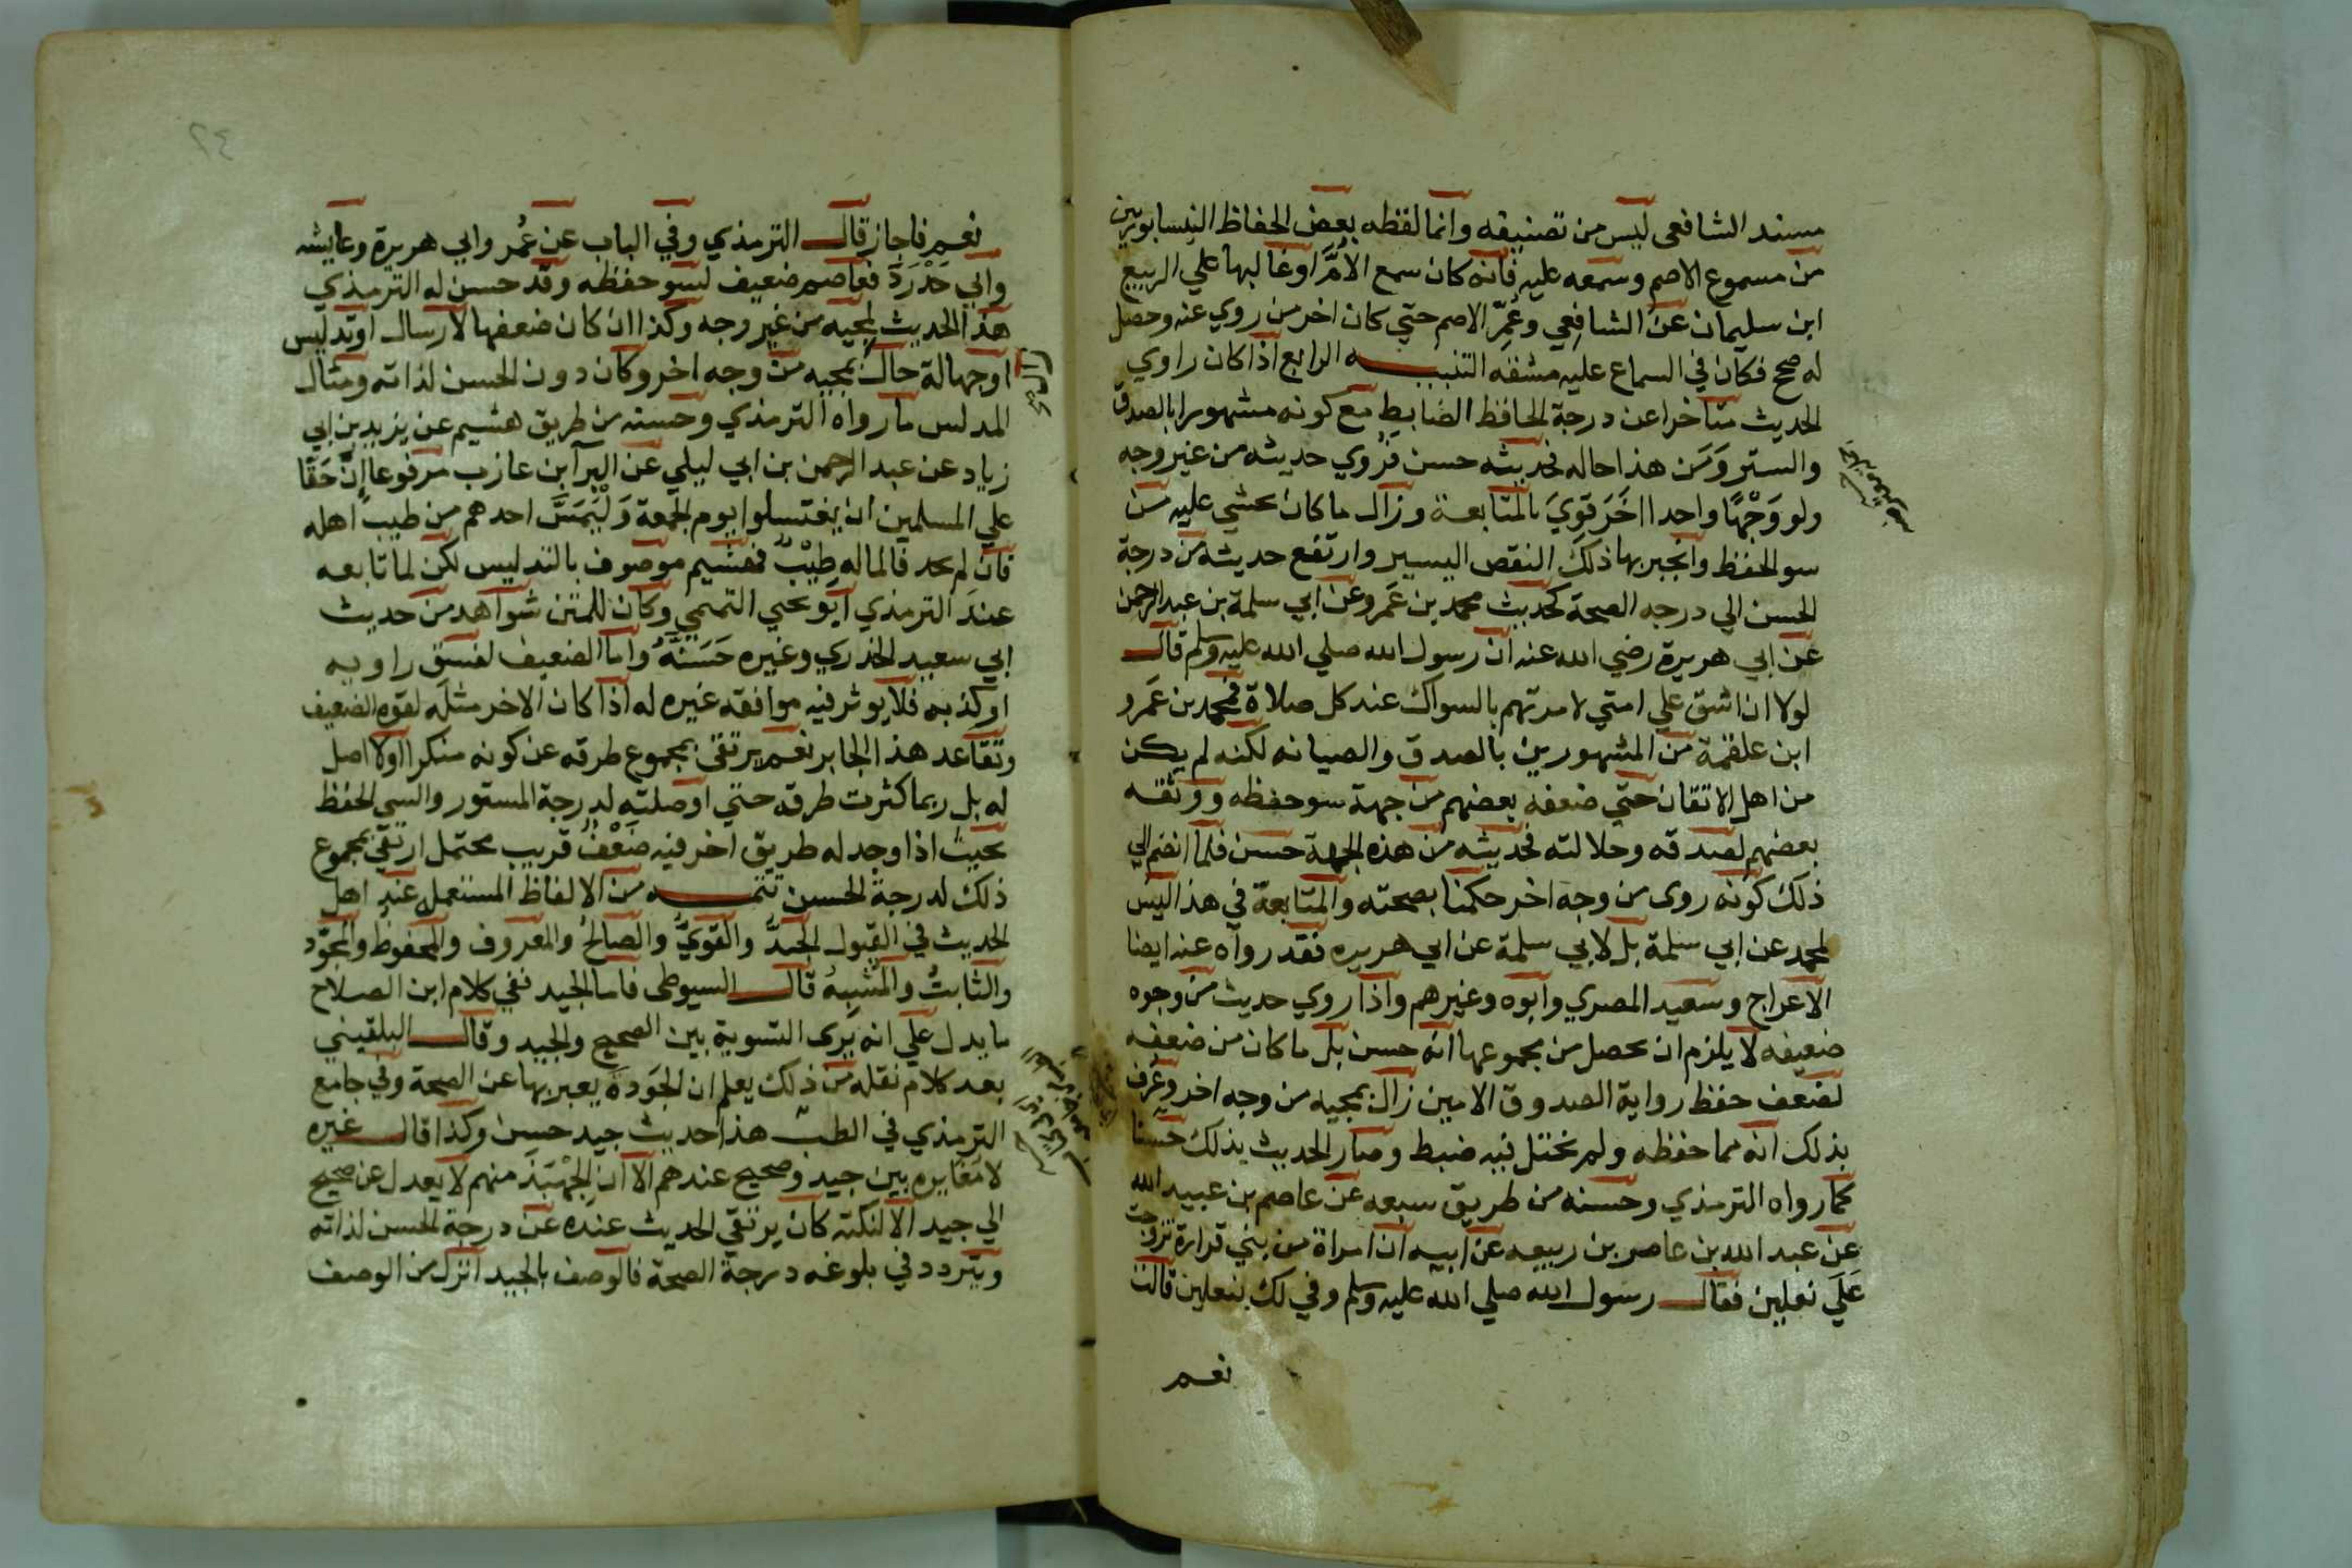 مسند الشافعي ليس من تصنيفه وانما لقظه بعض الحفاظ النيسابوريين
من مسموع الاصم وسمعه عليه فانه كان سمع الأمَّ اوغالبها علي الربيع
ابن سليمان عن الشافعي وعُمِّر الاصم حتي كان اخر من روي عنه وحصل
له صمم فكان في السماع عليه مشقه التنبيه الرابع اذا كان راوي
الحديث متاخرا عن درجة الحافظ الضابط مع كونه مشهورا بالصدق
والستر وَمَن هذا حاله فحديثه حسن فرُوي حديثه من غير وجه
ولو وَجْهًا واحدا اخَرَ قوِيَ بالمتابعة وزال ما كان يخشي عليه من
سو الحفظ وانجبر بها ذلك النقص اليسير وارتفع حديثه من درجة
الحسن الي درجه الصحة كحديث محمد بن عَمرو عن ابي سلمة بن عبد الرحمن
عن ابي هريرة رضي الله عنه ان رسول الله صلي الله عليه وسلم قال
لولا ان اشق علي امتي لامرتهم بالسواك عند كل صلاة فمحمد بن عَمرو
ابن علقمة من المشهورين بالصدق والصيانه لكنه لم يكن
من اهل الاتقان حتي ضعفه بعضهم من جهة سو حفظه ووثقه
بعضهم لصدقه وجلالته فحديثه من هذه الجهة حسن فلما انضم الي
ذلك كونه روى من وجه اخر حكمنا بصحته والمتابعة في هذا ليس
لمحمد عن ابي سلمة بل لابي سلمة عن ابي هريره فقد رواه عنه ايضا
الاعراج وسعيد المصري وابوه وغيرهم واذا روي حديث من وجوه
ضعيفه لا يلزم ان يحصل من مجموعها انه حسن بل ما كان من ضعفه
لضعف حفظ رواية الصدوق الامين زال بمجيه من وجه اخر وعُرف
بذلك انه مما حفظه ولم يختل فيه ضبط وصار الحديث بذلك حسنا
كما رواه الترمذي وحسنه من طريق سبعه عن عاصم بن عبيد الله
عن عبد الله بن عامر بن ربيعه عن ابيه ان امراة من بني قرارة تزوجت
عَلَي نعلين فقال رسول الله صلي الله عليه وسلم وفي لك بنعلين قالت
نعم
٢٤
نعم فاجاز قال الترمذي وفي الباب عن عُمر وابي هريرة وعايشه
وابي حَدْرَد فعاصم ضعيف لسو حفظه وقد حسن له الترمذي
هذا الحديث لمجيه من غير وجه وكذا ان كان ضعفها لارسال اوتدليس
اوجهالة حال بمجيه من وجه اخر وكان دون الحسن لذاته ومثال
المدلس ما رواه الترمذي وحسنه من طريق هشيم عن يزيد بن ابي
زياد عن عبد الرحمن بن ابي ليلي عن البرآ بن عازب مرفوعا إنَّ حَقًا
علي المسلمين ان يغتسلوا يوم الجمعة وَلْيَمَسَّ احدهم من طيب اهله
فان لم يجد فالما له طِيْبٌ فهشيم موصوف بالتدليس لكن لما تابعه
عند الترمذي ابو يحيي التميمي وكان للمتن شواهد من حديث
ابي سعيد الخدري وغيره حَسَنَهُ واما الضعيف لفسق راويه
اوكذبه فلا يوثر فيه موافقه غيره له اذا كان الاخر مثله لقوه الضعيف
وتقاعد هذا الجابر نعم يرتقي بمجموع طرقه عن كونه منكرا اولا اصل
له بل ربما كثرت طرقه حتي اوصلته لدرجة المستور والسي الحفظ
بحيث اذا وجد له طريق اخر فيه ضَعْفٌ قريب محتمل ارتقي بمجموع
ذلك لدرجة الحسن تتمه من الالفاظ المستعمل عند اهل
الحديث في القبول الجيدُ والقويُّ والصالحُ والمعروف والمحفوظ والمجوّد
والثابتُ والمُشبِهُ قال السيوطي فاما الجيد ففي كلام ابن الصلاح
ما يدل علي انه يَرى التسوية بين الصحيح والجيد وقال البلقيني
بعد كلام نقله من ذلك يعلم ان الجَودة يعبر بها عن الصحة وفي جامع
الترمذي في الطب هذا حديث جيد حسن وكذا قال غيره
لا مغايره بين جيد وصحيح عندهم الا ان الجهْبَذ منهم لا يعدل عن صحيح
الي جيد الا لنكته كان يرتقي الحديث عنده عن درجة الحسن لذاته
ويتردد في بلوغه درجة الصحة فالوصف بالجيد انزل من الوصف